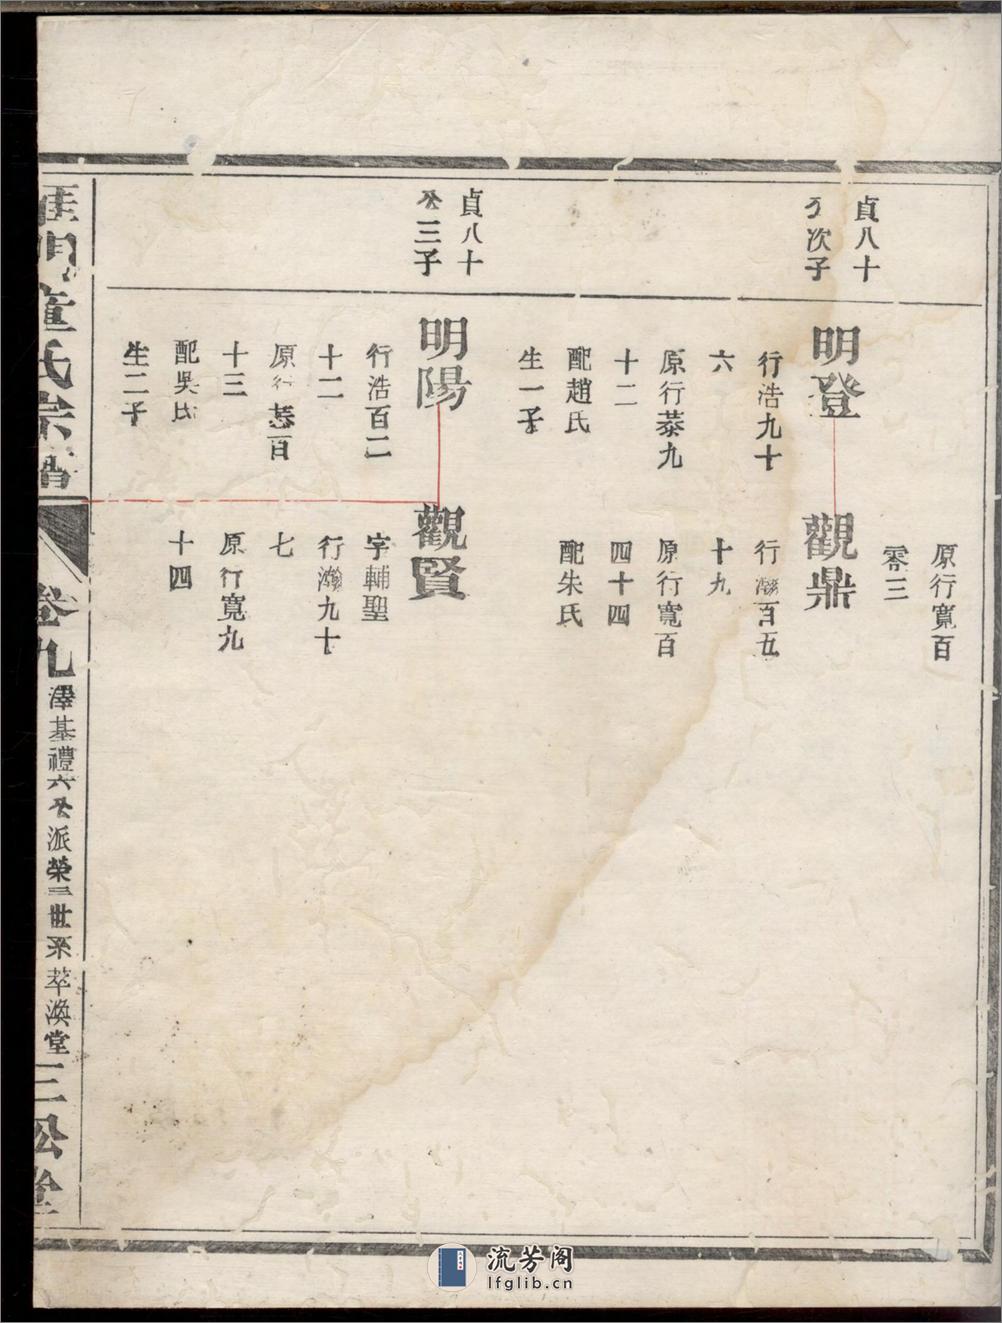 原行寬百
零三
貞八十
公次子
明登
行浩九十
六
原行恭九
十二
配趙氏
生一子
觀鼎
行瀚百五
十九
原行寬百
四十四
配朱氏
貞八十
公三子
明陽
行浩百二
十二
原行恭百
十三
配吳氏
生二子
觀賢
字輔聖
行瀚九十
七
原行寬九
十四
童氏宗譜
卷九
澤基禮六公派榮二世系萃渙堂
三公堂
流芳阁
lfglib.cn